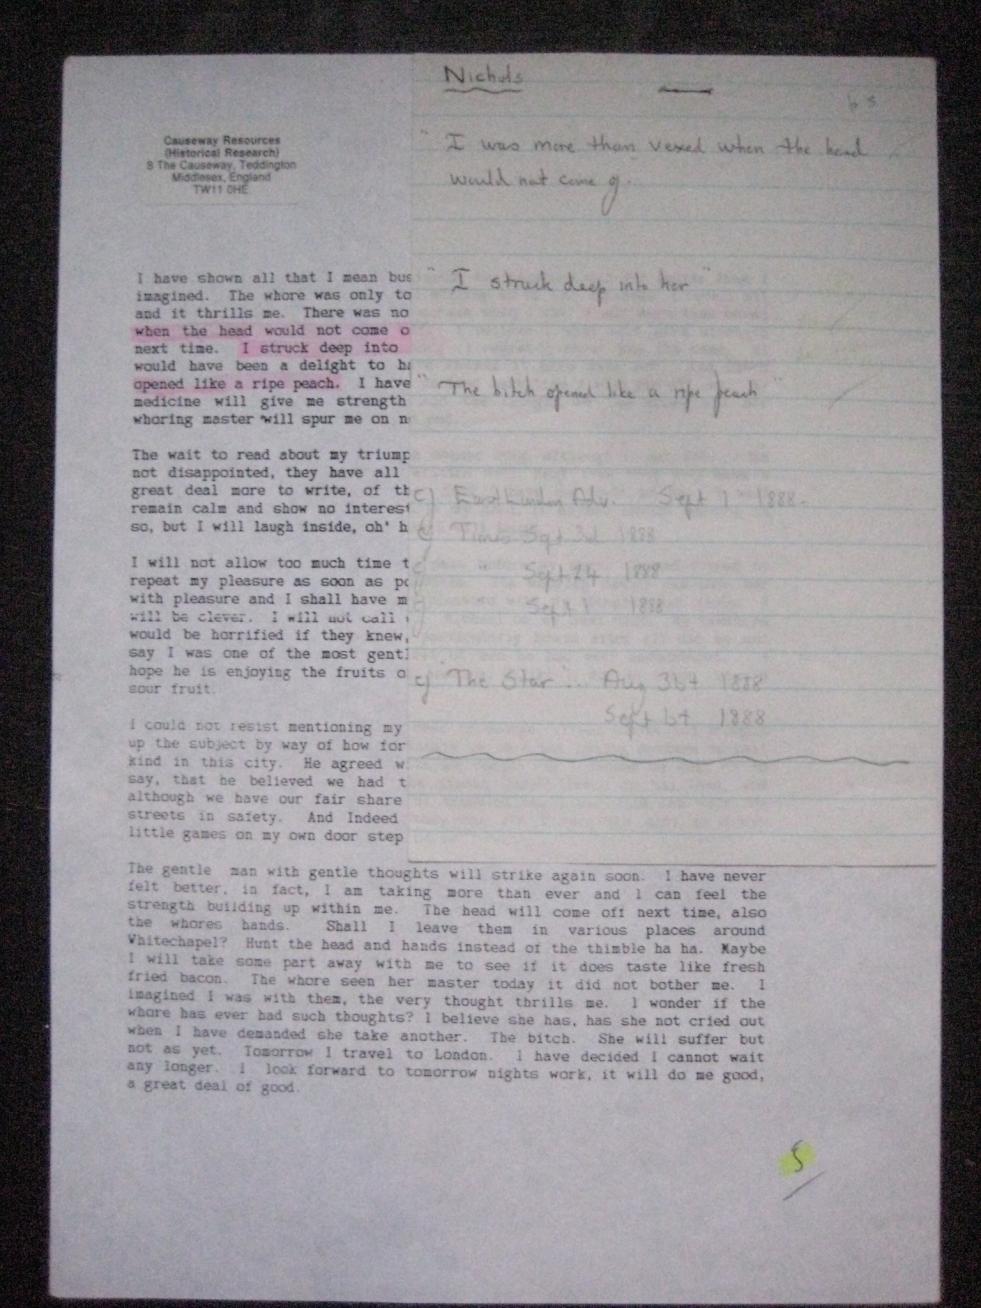 Nichols
b s
" I was more than vexed when the head
would not come of.
Causeway Resources
(Historical Research)
8 The Causeway, Teddington
Middlesex, England
TW11 0HE
" I struck deep into her "
" The bitch opened like a ripe peach "
c) East London Adv. Sept 1 1888.
c) Times Sept 3rd 1888
" Sept 24 1888
Sept 1 1888
c) The Star. Aug 31st 1888
Sept 1st 1888
I have shown all that I mean bus
imagined. The whore was only to
and it thrills me. There was no
when the head would not come o
next time. I struck deep into
would have been a delight to h
opened like a ripe peach. I have
medicine will give me strength
whoring master will spur me on n
The wait to read about my triump
not disappointed, they have all
great deal more to write, of th
remain calm and show no interest
so, but I will laugh inside, oh' h
I will not allow too much time t
repeat my pleasure as soon as po
with pleasure and I shall have m
will be clever. I will not call
would be horrified if they knew,
say I was one of the most gentl
hope he is enjoying the fruits o
sour fruit.
I could not resist mentioning my
up the subject by way of how for
kind in this city. He agreed w
say, that he believed we had t
although we have our fair share
streets in safety. And Indeed
little games on my own door step
The gentle man with gentle thoughts will strike again soon. I have never
felt better, in fact, I am taking more than ever and I can feel the
strength building up within me. The head will come off next time, also
the whores hands. Shall I leave them in various places around
Whitechapel? Hunt the head and hands instead of the thimble ha ha. Maybe
I will take some part away with me to see if it does taste like fresh
fried bacon. The whore seen her master today it did not bother me. I
imagined I was with them, the very thought thrills me. I wonder if the
whore has ever had such thoughts? I believe she has, has she not cried out
when I have demanded she take another. The bitch. She will suffer but
not as yet. Tomorrow I travel to London. I have decided I cannot wait
any longer. I look forward to tomorrow nights work, it will do me good,
a great deal of good.
5